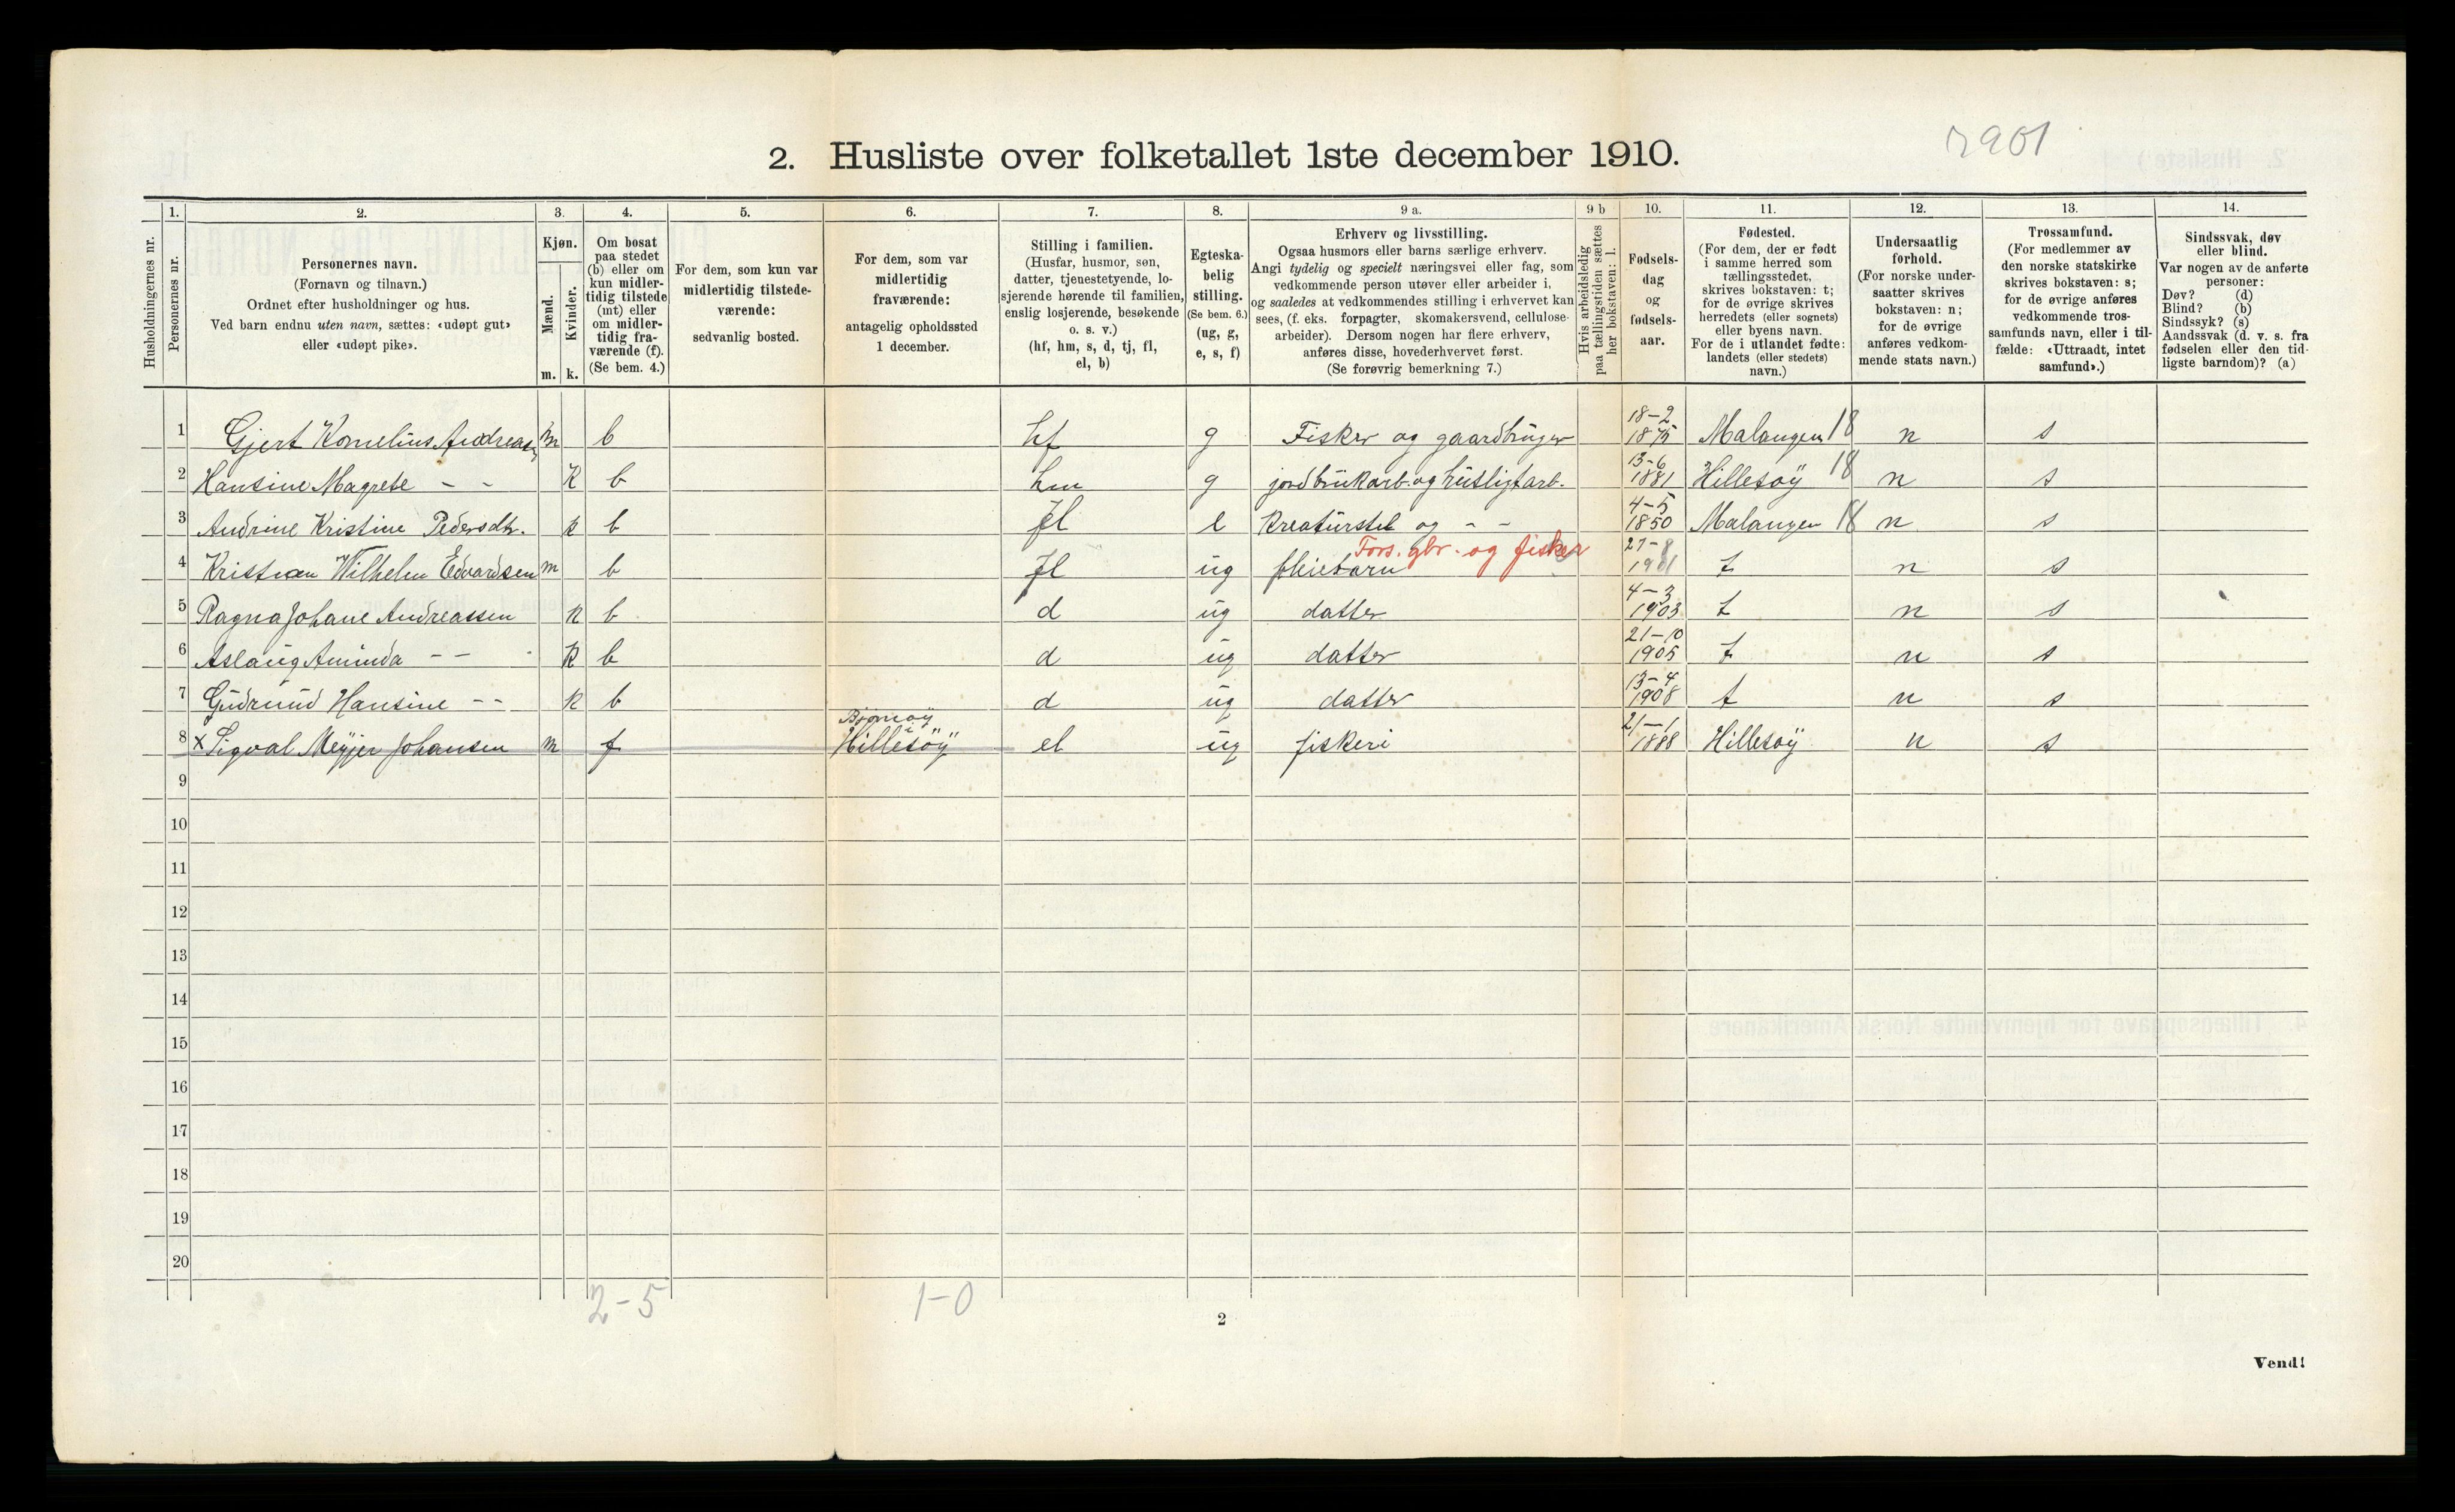 2901
2. Husliste over folketallet 1ste december 1910.
Husholdningernes nr.
1.
Personernes nr.
2.
Personernes navn.
(Fornavn og tilnavn.)
Ordnet efter husholdninger og hus.
Ved barn endnu uten navn, sættes: «udøpt gut»
eller «udøpt pike».
3.
Kjøn.
Mænd.
Kvinder.
m. k.
4.
Om bosat
paa stedet
(b) eller om
kun midler-
tidig tilstede
(mt) eller
om midler-
tidig fra-
værende (f).
(Se bem. 4.)
5.
For dem, som kun var
midlertidig tilstede-
værende:
sedvanlig bosted.
6.
For dem, som var
midlertidig
fraværende:
antagelig opholdssted
1 december.
7.
Stilling i familien.
(Husfar, husmor, søn,
datter, tjenestetyende, lo-
sjerende hørende til familien,
enslig losjerende, besøkende
o. s. v.)
(hf, hm, s, d, tj, fl,
el, b)
8.
Egteska-
belig
stilling.
(Se bem. 6.)
(ug, g,
e, s, f)
9 a.
Erhverv og livsstilling.
Ogsaa husmors eller barns særlige erhverv.
Angi tydelig og specielt næringsvei eller fag, som
vedkommende person utøver eller arbeider i,
og saaledes at vedkommendes stilling i erhvervet kan
sees, (f. eks. forpagter, skomakersvend, cellulose-
arbeider). Dersom nogen har flere erhverv,
anføres disse, hovederhvervet først.
(Se forøvrig bemerkning 7.)
9 b
Hvis arbeidsledig
paa tællingstiden sættes
her bokstaven: l.
10.
Fødsels-
dag
og
fødsels-
aar.
11.
Fødested.
(For dem, der er født
i samme herred som
tællingsstedet,
skrives bokstaven: t;
for de øvrige skrives
herredets (eller sognets)
eller byens navn.
For de i utlandet fødte:
landets (eller stedets)
navn.)
12.
Undersaatlig
forhold.
(For norske under-
saatter skrives
bokstaven: n;
for de øvrige
anføres vedkom-
mende stats navn.)
13.
Trossamfund.
(For medlemmer av
den norske statskirke
skrives bokstaven: s;
for de øvrige anføres
vedkommende tros-
samfunds navn, eller i til-
fælde: «Uttraadt, intet
samfund».)
14.
Sindssvak, døv
eller blind.
Var nogen av de anførte
personer:
Døv? (d)
Blind? (b)
Sindssyk? (s)
Aandssvak (d. v. s. fra
fødselen eller den tid-
ligste barndom)? (a)
1 Gjert Kornelius Andreasen m b hf g Fisker og gaardbruger 18-2 1875 Malangen 18 n s
2 Hansine Magrete - - k b hm g jordbrukarb. og husligtarb. 13-6 1881 Hillesöy 18 n s
3 Andrine Kristine Pedersdtr. k b fl e Kreaturstel og - - 4-5 1850 Malangen 18 n s
Fors. gbr. og fisker
4 Kristian Wilhelm Edvardsen m b fl ug pleiebarn 27-8 1901 t n s
5 Ragna Johane Andreassen k b d ug datter 4-3 1903 t n s
6 Aslaug Aminda - - k b d ug datter 21-10 1905 t n s
7 Gudrund Hansine - - k b d ug datter 13-4 1908 t n s
Bjørnøy i
8 x Sigval Meyjer Johansen m f Hillesöy el ug fiskeri 21-1 1888 Hillesöy n s
9
10
11
12
13
14
15
16
17
18
19
20
2-5
1-0
2
Vend!